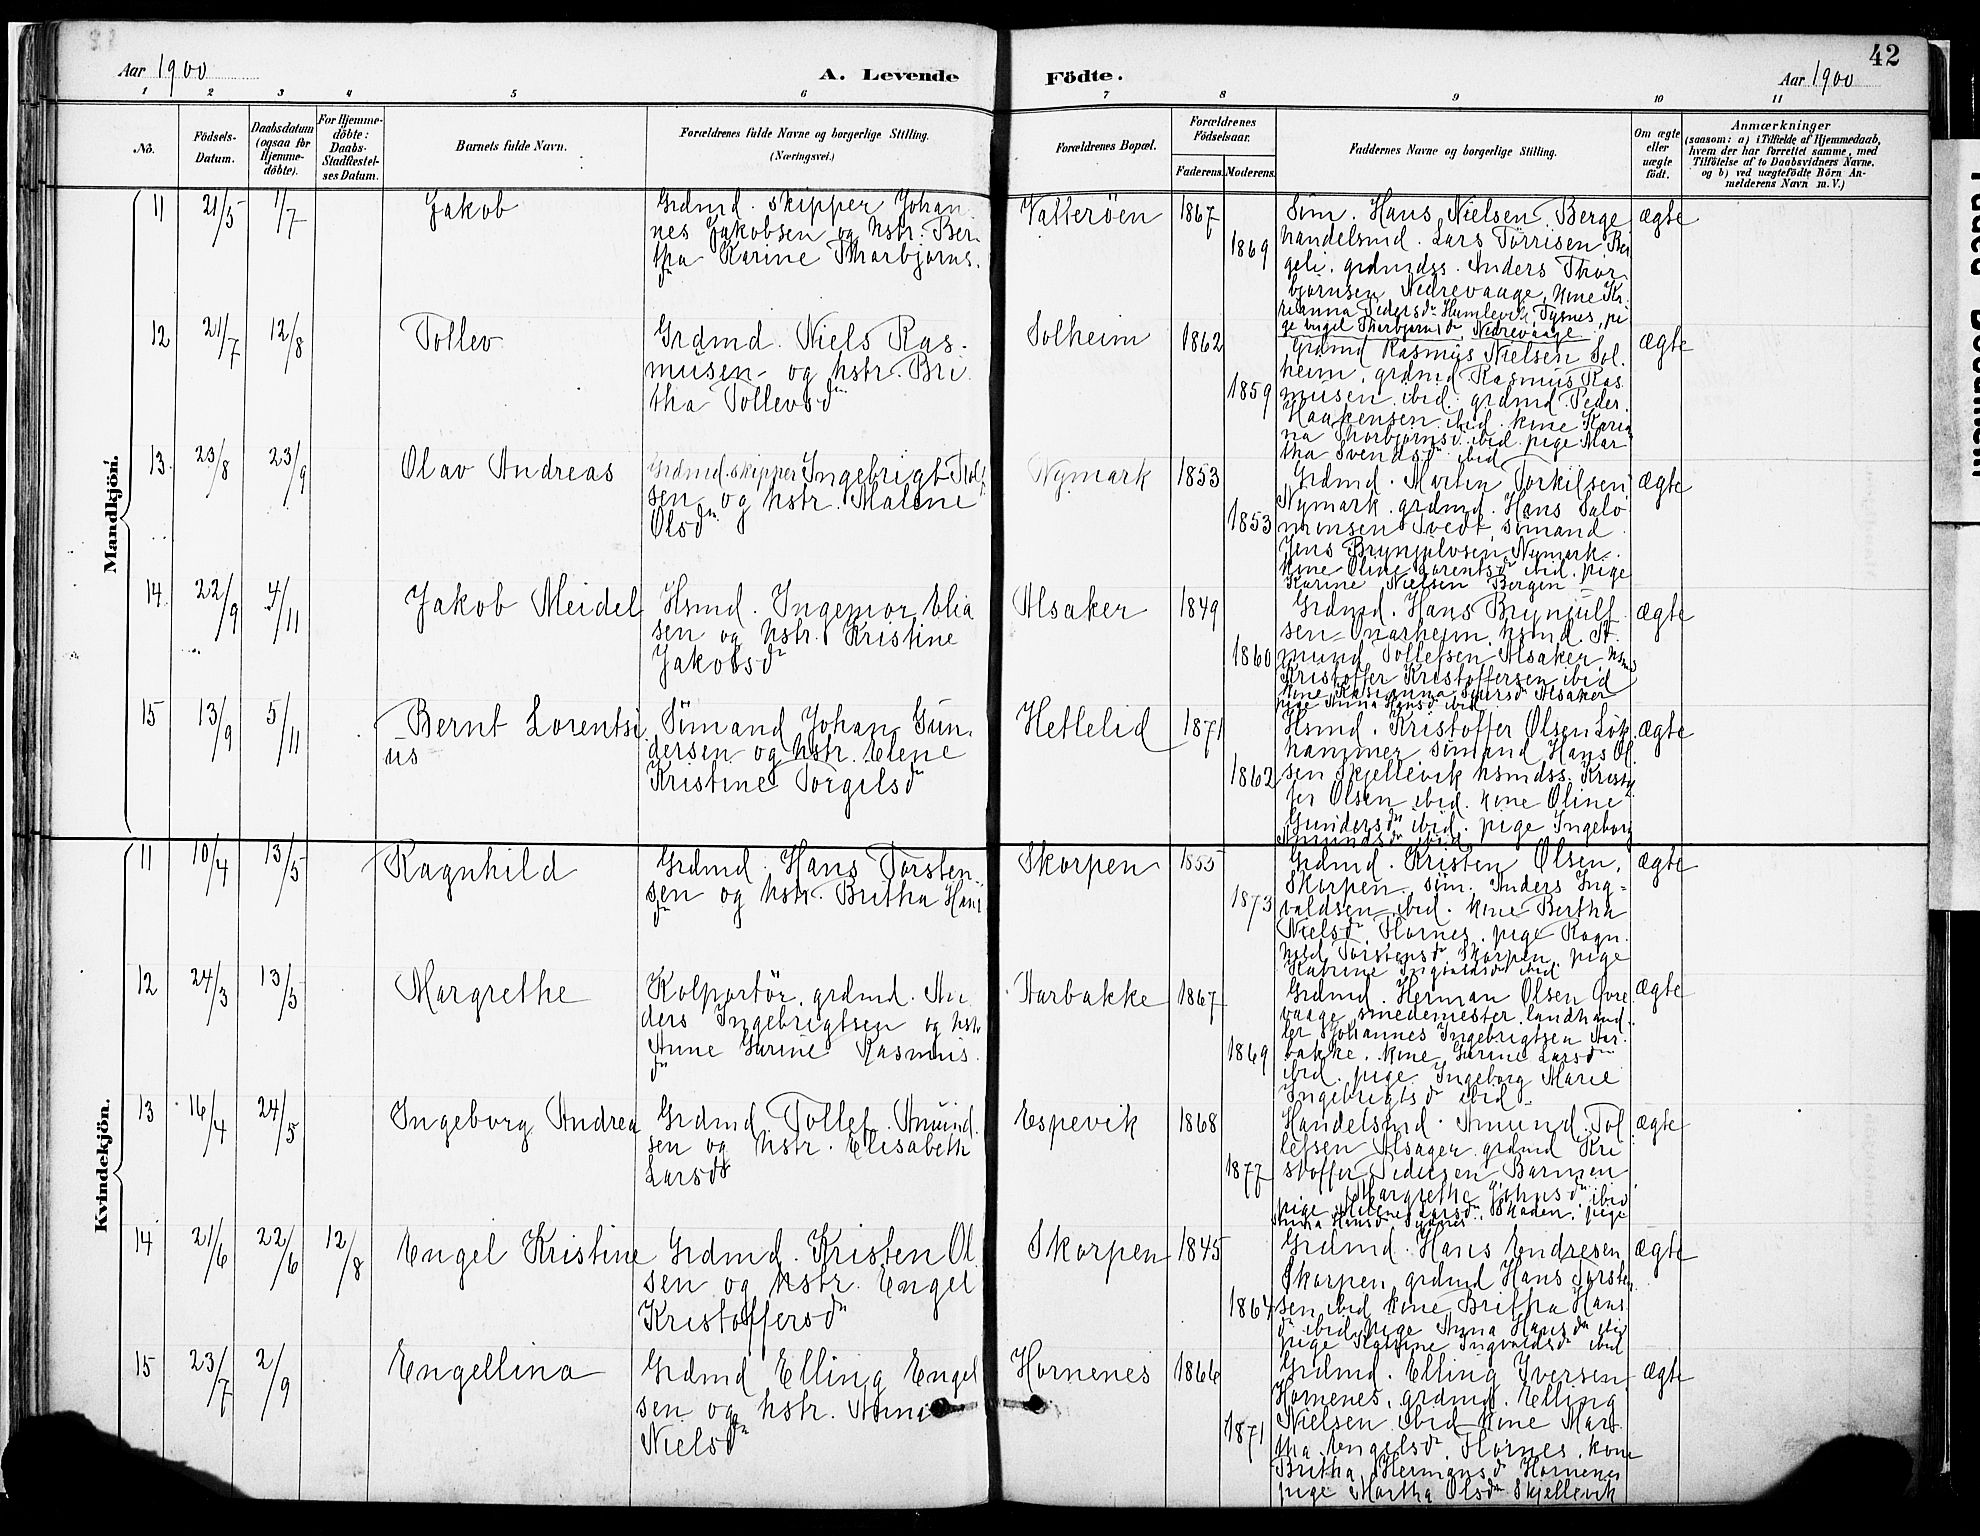 42
Aar 1900
A. Levende
Födte.
Aar 1900
1 2 3 4 5 6 7 8 9 10 11
No.
Födsels-Datum.
Daabsdatum (ogsaa for Hjemme-döbte).
For Hjemme-döbte: Daabs-Stadfæstel-ses Datum.
Barnets fulde Navn.
Forældrenes fulde Navne og borgerlige Stilling.
(Næringsvei.)
Forældrenes Bopæl.
Forældrenes Födselsaar.
Faderens. Moderens.
Faddernes Navne og borgerlige Stilling.
Om ægte eller uægte födt.
Anmærkninger
(saasom: a) i Tilfælde af Hjemmedaab,
hvem der har forrettet samme, med
Tilföielse af to Daabsvidners Navne.
og b) ved uægtefödte Börn An-
melderens Navn m. V.)
Mandkjön.
11 21/5 1/7 Jakob
Grdmd. skipper Johan
nes Jakobsen og hstr. Ber
tha Karine Thorbjørns.
dr
Valterøen 1867
1869
Søm. Hans Nielsen Berge
handelsmd. Lars Tørrisen Ber
geli. grdmdss. Anders Thor
bjørnsen Nedrevaage, kone Kr.
rianna Pedersdr Humlevik, Tysnes, pi
ge Engel Thorbjørnsdr, Nedrevaage
ægte
12 21/7 12/8 Tollev
Grdmd. Niels Ras.
musen og hstr. Bri
tha Tollevsdr
Solheim 1862
1859
Grdmd Rasmus Nielsen Sol.
heim, grdmd Rasmus Ras
musen ibid. grdmd. Peder.
Haakensen ibid. kone Karia
na Thorbjørnsdr ibid. pige Mar
tha Svendsdr ibid
ægte
13 23/8 23/9 Olav Andreas
Grdmd. skipper Ingebrigt Rolf
sen og hstr. Malene
Olsdr
Nymark 1853
1853
Grdmd. Martin Torkilsen
Nymark. grdmd. Hans Salo
monsen Tvedt, sømand
Jens Brynjulvsen Nymark.
kone Oline Lorentsdr ibid. pige
Karine Nielsen Bergen
ægte
14 22/9 4/11 Jakob Meidel
Hsmd. Ingemor Elia
sen og hstr. Kristine
Jakobsdr
Alsaker 1849
1860
Grdmd. Hans Brynjulf
sen Onarheim. hsmd. A
mund Tollefsen Alsaker, hsmd
Kristoffer Kristoffersen ibid
pige Anna Hansdr ibid
ægte
15 13/9 5/11 Bernt Lorentsi
us
Sømand Johan Gun
dersen og hstr. Elene
Kristine Torgilsdr
Hettelid 1871
1862
Hsmd. Kristoffer Olsen Løk
hammer sømand Hans Ol
sen Skjellevik hsmdss. Kristof
fer Olsen ibid. kone Oline
Gundersdr ibid. pige Ingeborg
Amundsdr ibid
ægte
Kvindekjön.
11 10/4 13/5 Ragnhild
Grdmd. Hans Torsten
sen og hstr. Britha Hans
dr
Skorpen 1855
1873
Grdmd. Kristen Olsen.
Skorpen. søm. Anders Ing-
valdsen ibid. kone Bertha
Nielsdr Flornes, pige Ragn
hild Torstensdr Skorpen. pige
Katrine Ingvaldsdr ibid
ægte
12 24/3 13/5 Margrethe
Kolportør. grdmd. An
ders Ingebrigtsen og hstr
Anne Gurine Rasmus.
dr
Aarbakke 1867
1869
Grdmd. Herman Olsen Øvre
vaage, smedemester. landhand
ler Johannes Ingebrigtsen Aar
bakke. kone Gurine Larsdr
ibid. pige Ingeborg Marie
Ingebrigtsdr ibid
ægte
13 16/4 24/5 Ingeborg Andrea
Grdmd Tollef Amund.
sen og hstr. Elisabeth
Larsdr
Espevik 1868
1877
Handelsmd. Amund Tol
lefsen Alsager grdmd Kri
stoffer Pedersen Barmen
Margrethe Johnsdr ibid
ægte
14 21/6 22/6 12/8 Engel Kristine
Grdmd. Kristen Ol
sen og hstr. Engel
Kristoffersdr
Skorpen 1845
1864
Grdmd. Hans Endresen
Skorpen, grdmd Hans Torsten
sen ibid kone Britha Hans
dr ibid pige Anna Hansdr ibid
pige Katrine Ingvaldsdr ibid
ægte
15 23/7 2/9 Engellina
Grdmd Elling Engel
sen og hstr. Anna
Nielsdr
Hornenes 1866
1871
Grdmd. Elling Iversen
Hornenes, grdmd. Elling
Nielsen ibid kone Mar
tha Engelsdr, Flornes, kone
Britha Hermansdr Hornenes
pige Martha Olsdr Skjellevik
ægte